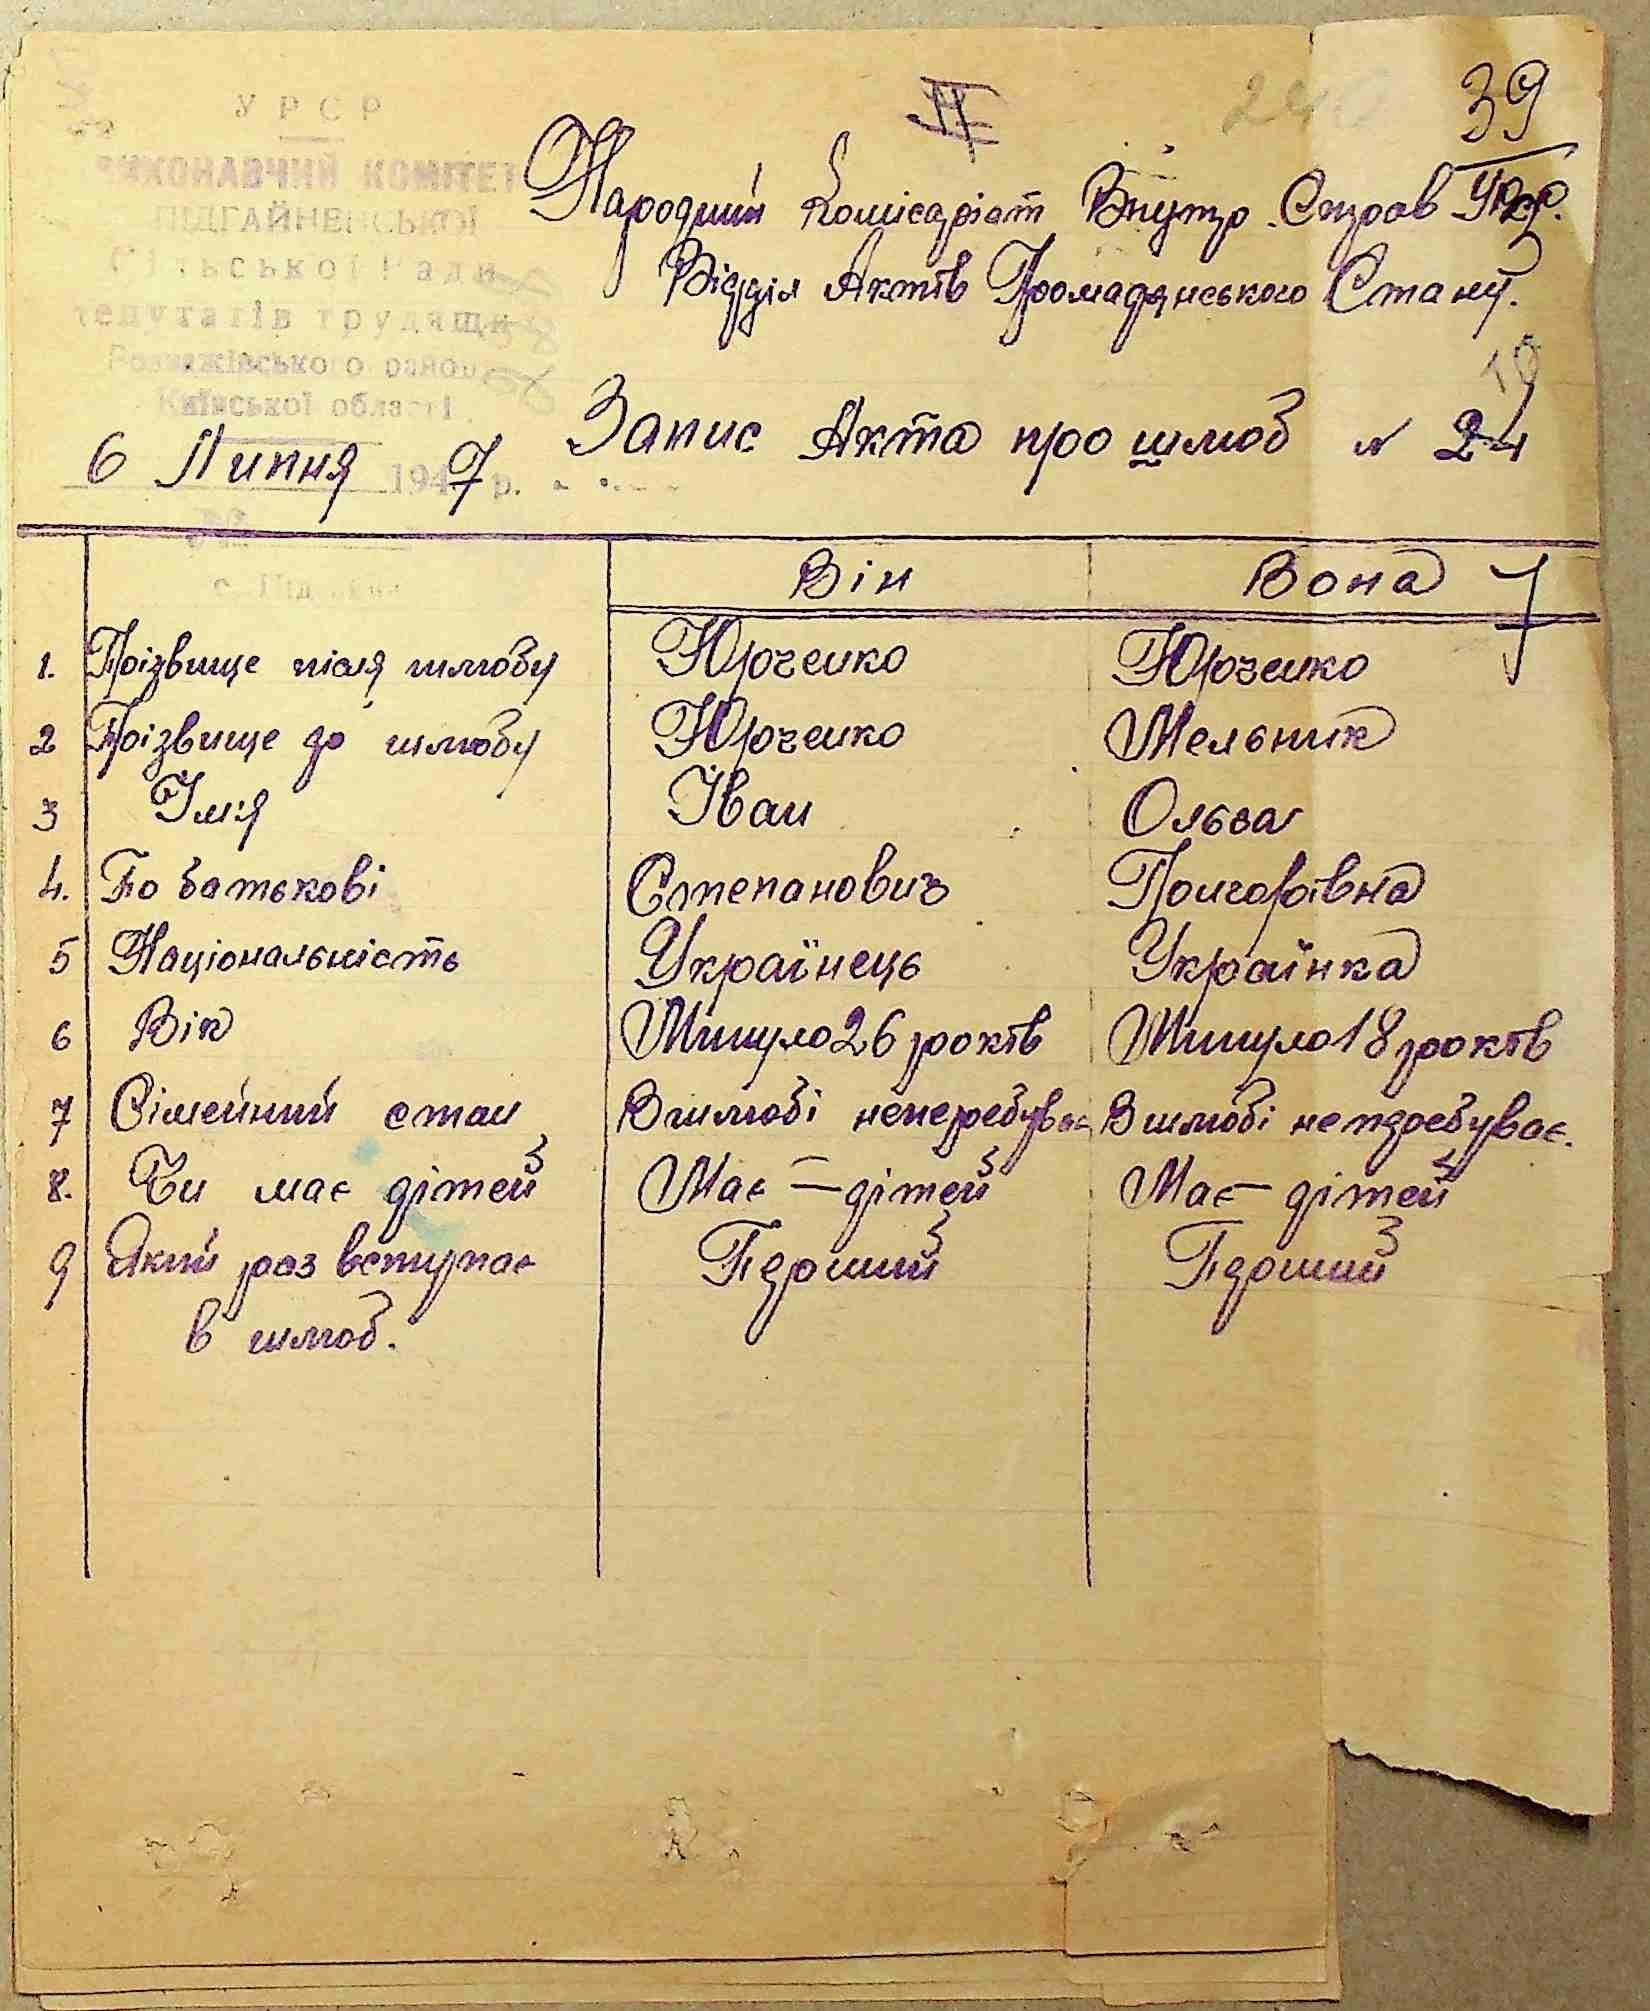 УРСР
ВИКОНАВЧИЙ КОМІТЕТ
ПІДГАЙНЕНСЬКОЇ
Сільської Ради
депутатів трудящих
Розважівського району
Київської області
6 Липня 1947 р.
39
Народний Комісаріат Внутр. Справ УРСР.
Відділ Актів Громадянського Стану.
Запис Акта про шлюб № 24
Він Вона
1. Прізвище після шлюбу Юрченко Юрченко
2 Прізвище до шлюбу Юрченко Мельник
3 Ім'я Іван Ольга
4. По батькові Степанович Григорівна
5 Національність Українець Українка
6 Вік Минуло 26 років Минуло 18 років
7 Сімейний стан В шлюбі неперебуває В шлюбі непребуває.
8. Чи має дітей Має — дітей Має — дітей
9 Який раз вступає Перший Перший
в шлюб.